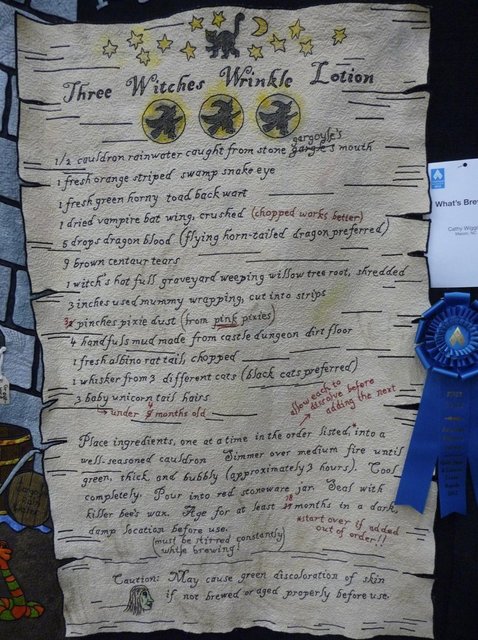 Three Witches Wrinkle Lotion
gargoyle's
1/2 cauldron rainwater caught from stone gargle's mouth
1 fresh orange striped swamp snake eye
1 fresh green horny toad back wart
1 dried vampire bat wing, crushed (chopped works better)
5 drops dragon blood (flying horn-tailed dragon preferred)
9 brown centaur tears
1 witch's hat full graveyard weeping willow tree root, shredded
3 inches used mummy wrapping, cut into strips
pinches pixie dust (from pink pixies)
4 handfuls mud made from castle dungeon dirt floor
1 fresh albino rat tail, chopped
1 whisker from 3 different cats (black cats preferred)
3 baby unicorn tail hairs
→ under months old
allow each to
dissolve before
adding the next
Place ingredients, one at a time in the order listed,* into a
well-seasoned cauldron. Simmer over medium fire until
green, thick, and bubbly (approximately 3 hours). Cool
completely. Pour into red stoneware jar. Seal with
killer bee's wax. Age for at least 18 months in a dark,
damp location before use.
(must be stirred constantly
while brewing!)
*start over if added
out of order!!
Caution: May cause green discoloration of skin
if not brewed or aged properly before use.
What's Brew
Cathy Wigg